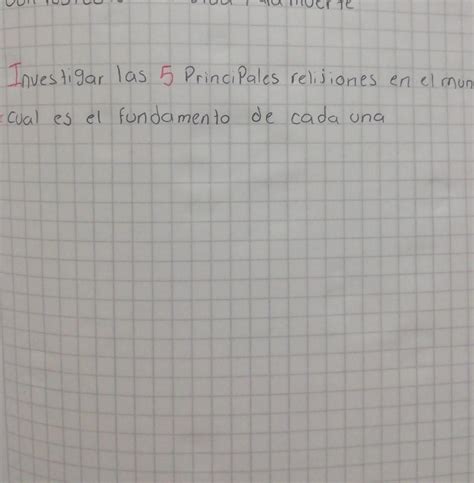 muerte
Investigar las 5 Principales relijiones en el mun
cual es el fundamento de cada una